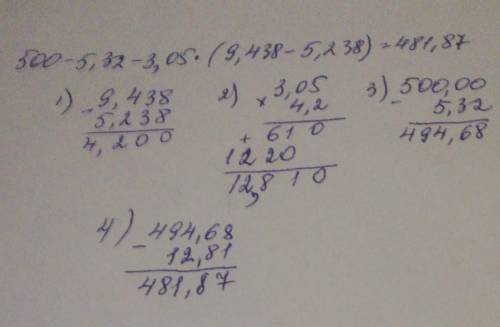 500-5,32-3,05·(9,438-5,238)=481,87
1) 9,438
- 5,238
4,200
2) 3,05
× 4,2
+ 610
1220
12,810
3) 500,00
- 5,32
494,68
4) - 494,68
12,81
481,87